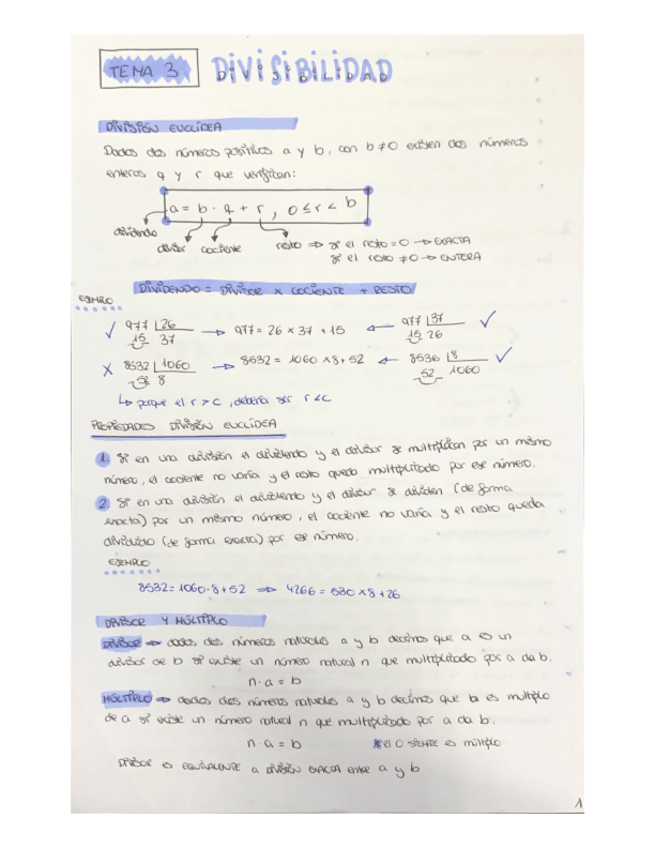 TEMA 3 DIVISIBILIDAD
DIVISIÓN EUCLÍDEA
Dados dos números positivos a y b, con b≠0 existen dos números
enteros q y r que verifican:
a = b · q + r , 0 ≤ r < b
dividendo
divisor cociente resto ⇒ si el resto = 0 → EXACTA
si el resto ≠ 0 → ENTERA
DIVIDENDO = DIVISOR × COCIENTE + RESTO
EJEMPLO
✓ 977 |26 → 977 = 26 × 37 + 15 ← 977 |37 ✓
15 37 15 26
X 8532 |1060 → 8532 = 1060 × 8 + 52 ← 8536 |8 ✓
52 8 52 1060
↳ porque el r > c , debería ser r < c
PROPIEDADES DIVISIÓN EUCLÍDEA
1. Si en una división el dividendo y el divisor se multiplican por un mismo
número, el cociente no varía y el resto queda multiplicado por ese número.
2. Si en una división el dividendo y el divisor se dividen (de forma
exacta) por un mismo número, el cociente no varía y el resto queda
dividido (de forma exacta) por ese número.
EJEMPLO
8532 = 1060·8 + 52 ⇒ 4266 = 530 × 8 + 26
DIVISOR Y MÚLTIPLO
DIVISOR ⇒ dados dos números naturales a y b decimos que a es un
divisor de b si existe un número natural n que multiplicado por a da b.
n · a = b
MÚLTIPLO ⇒ dados dos números naturales a y b decimos que b es múltiplo
de a si existe un número natural n que multiplicado por a da b.
n · a = b *el 0 SIEMPRE es múltiplo
DIVISOR ES EQUIVALENTE a DIVISIÓN EXACTA entre a y b
1